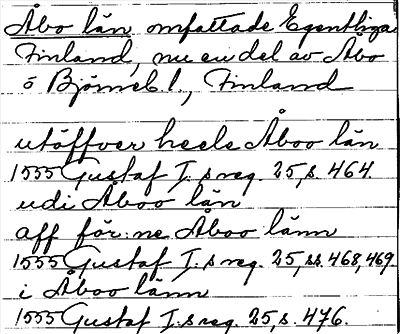 Åbo län omfattade Egentliga
Finland, nu en del av Åbo
o Björneb. l., Finland
utöffver heele Åboo län
1555 Gustaf I.s reg. 25, s. 464.
udi Åboo län
aff för:ne Åboo länn
1555 Gustaf I.s reg. 25, ss. 468, 469
i Åboo länn
1555 Gustaf I.s reg. 25, s. 476.